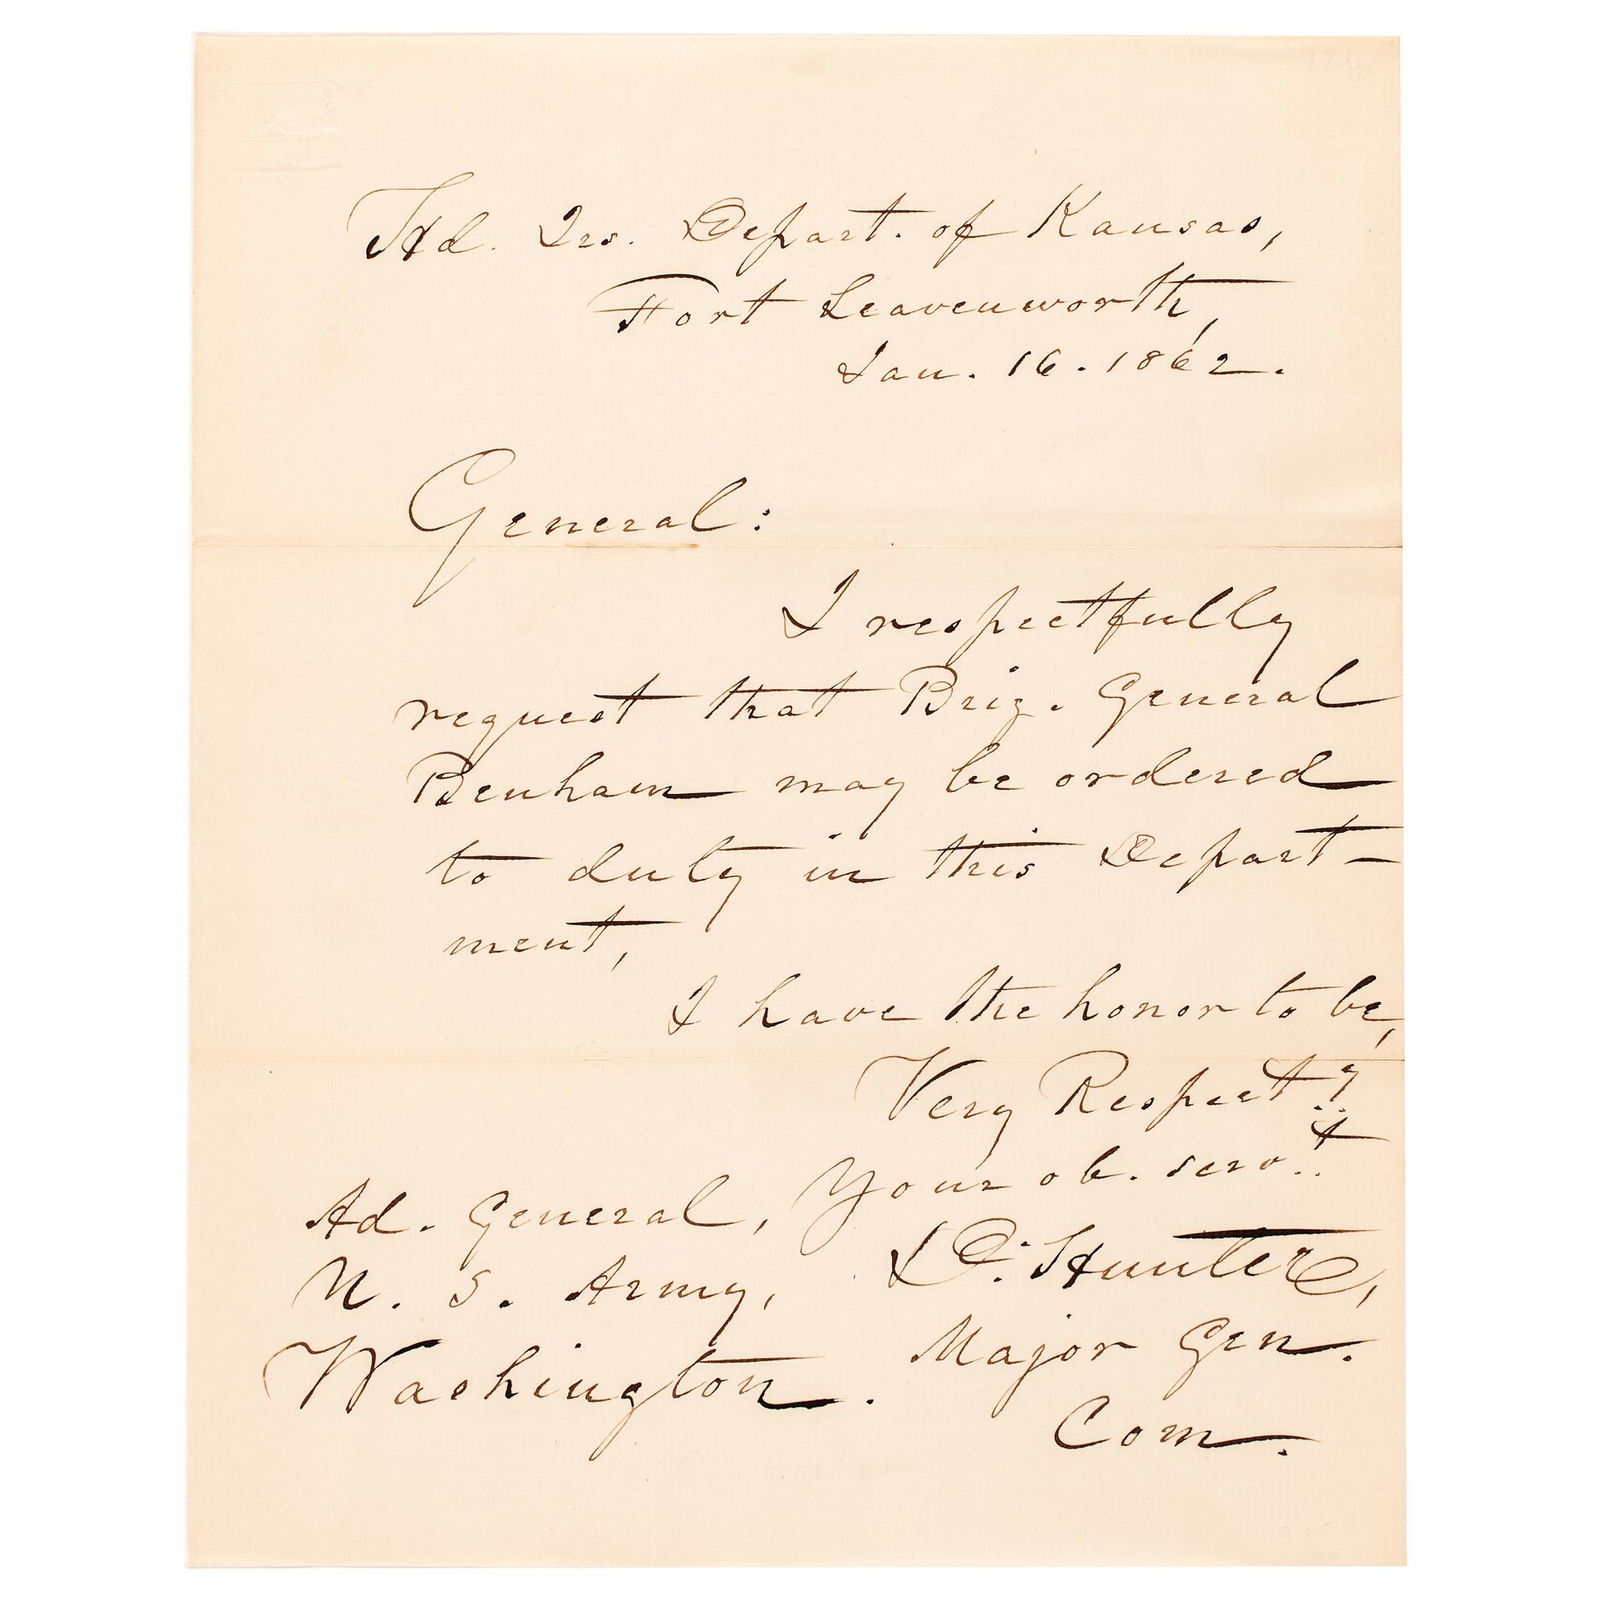 Hd. Qrs. Depart. of Kansas,
Fort Leavenworth,
Jan. 16. 1862.
General:
I respectfully
request that Brig. General
Benham may be ordered
to duty in this Depart-
ment,
I have the honor to be,
Very Respecty
Your ob. servt
D. Hunter,
Major Gen.
Com.
Ad. General,
U. S. Army,
Washington.